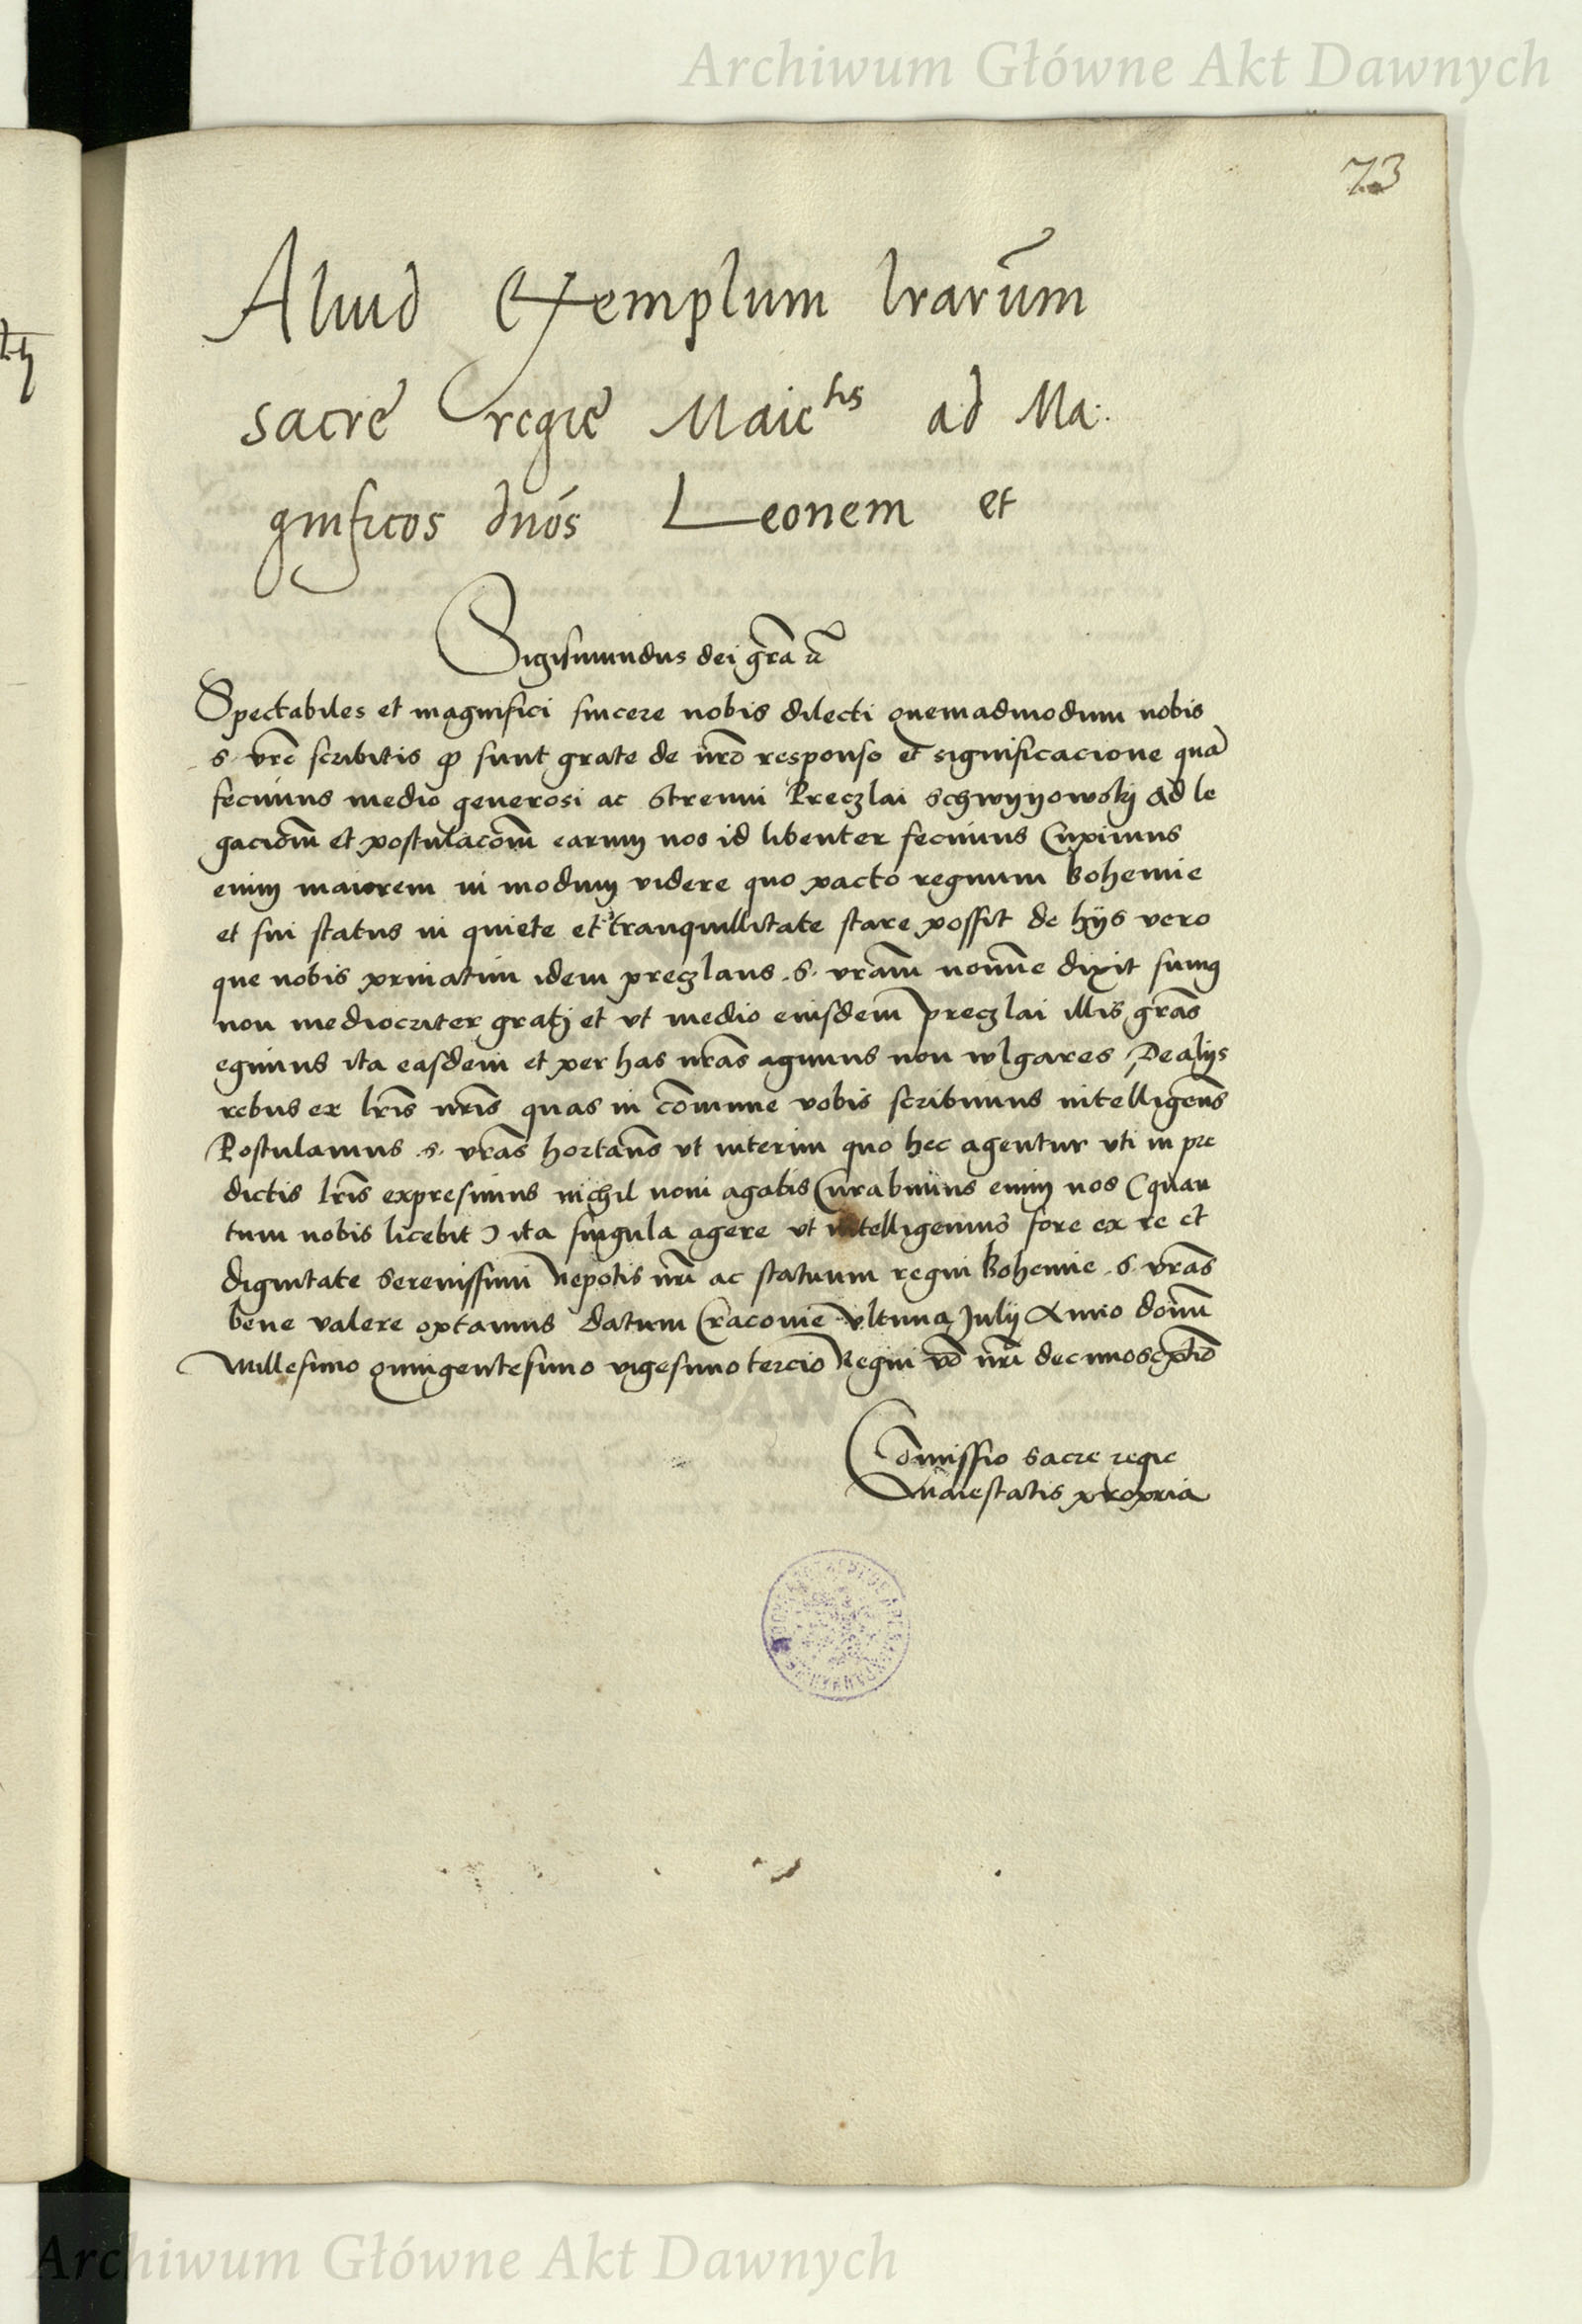 Archiwum Główne Akt Dawnych
73
Aliud Exemplum lrarum
sacre regie Maietis ad Ma:
gnificos dnos Leonem et
Sigismundus dei gra
Spectabiles et magnifici sincere nobis dilecti quemadmodum nobis
s. vre scribitis sunt grate de nro responso et significacione qua
fecimus medio generosi ac strenui Preczlai schwyyowskj ad le
gaciom et postulacom earum nos id libenter fecimus Cupimus
enim maiorem in modum videre quo pacto regnum bohemie
et sui status in quiete et tranquillitate stare possit de hijs vero
que nobis priuatim idem preczlaus .s. vram nomine dixit sumus
non mediocriter gratj et vt medio eiusdem preczlai illis gras
egimus ita easdem et per has nras agimus non wlgares De alijs
rebus ex lris nris quas in comune vobis scribimus intelligens
Postulamus .s. vras hortans vt interim quo hec agentur vti in pre
dictis lris expresimus nichil noui agatis Curabimus enim nos (quan
tum nobis licebit) ita singula agere vt intelligemus fore ex re et
dignitate serenissimi Nepotis nri ac statuum regni bohemie .s. vras
bene valere optamus datum Cracouie vltima Julij Anno domi
Millesimo quingentesimo vigesimotercio Regni vo nri decimoseptio
Comissio sacre regie
Maiestatis propria
Archiwum Główne Akt Dawnych